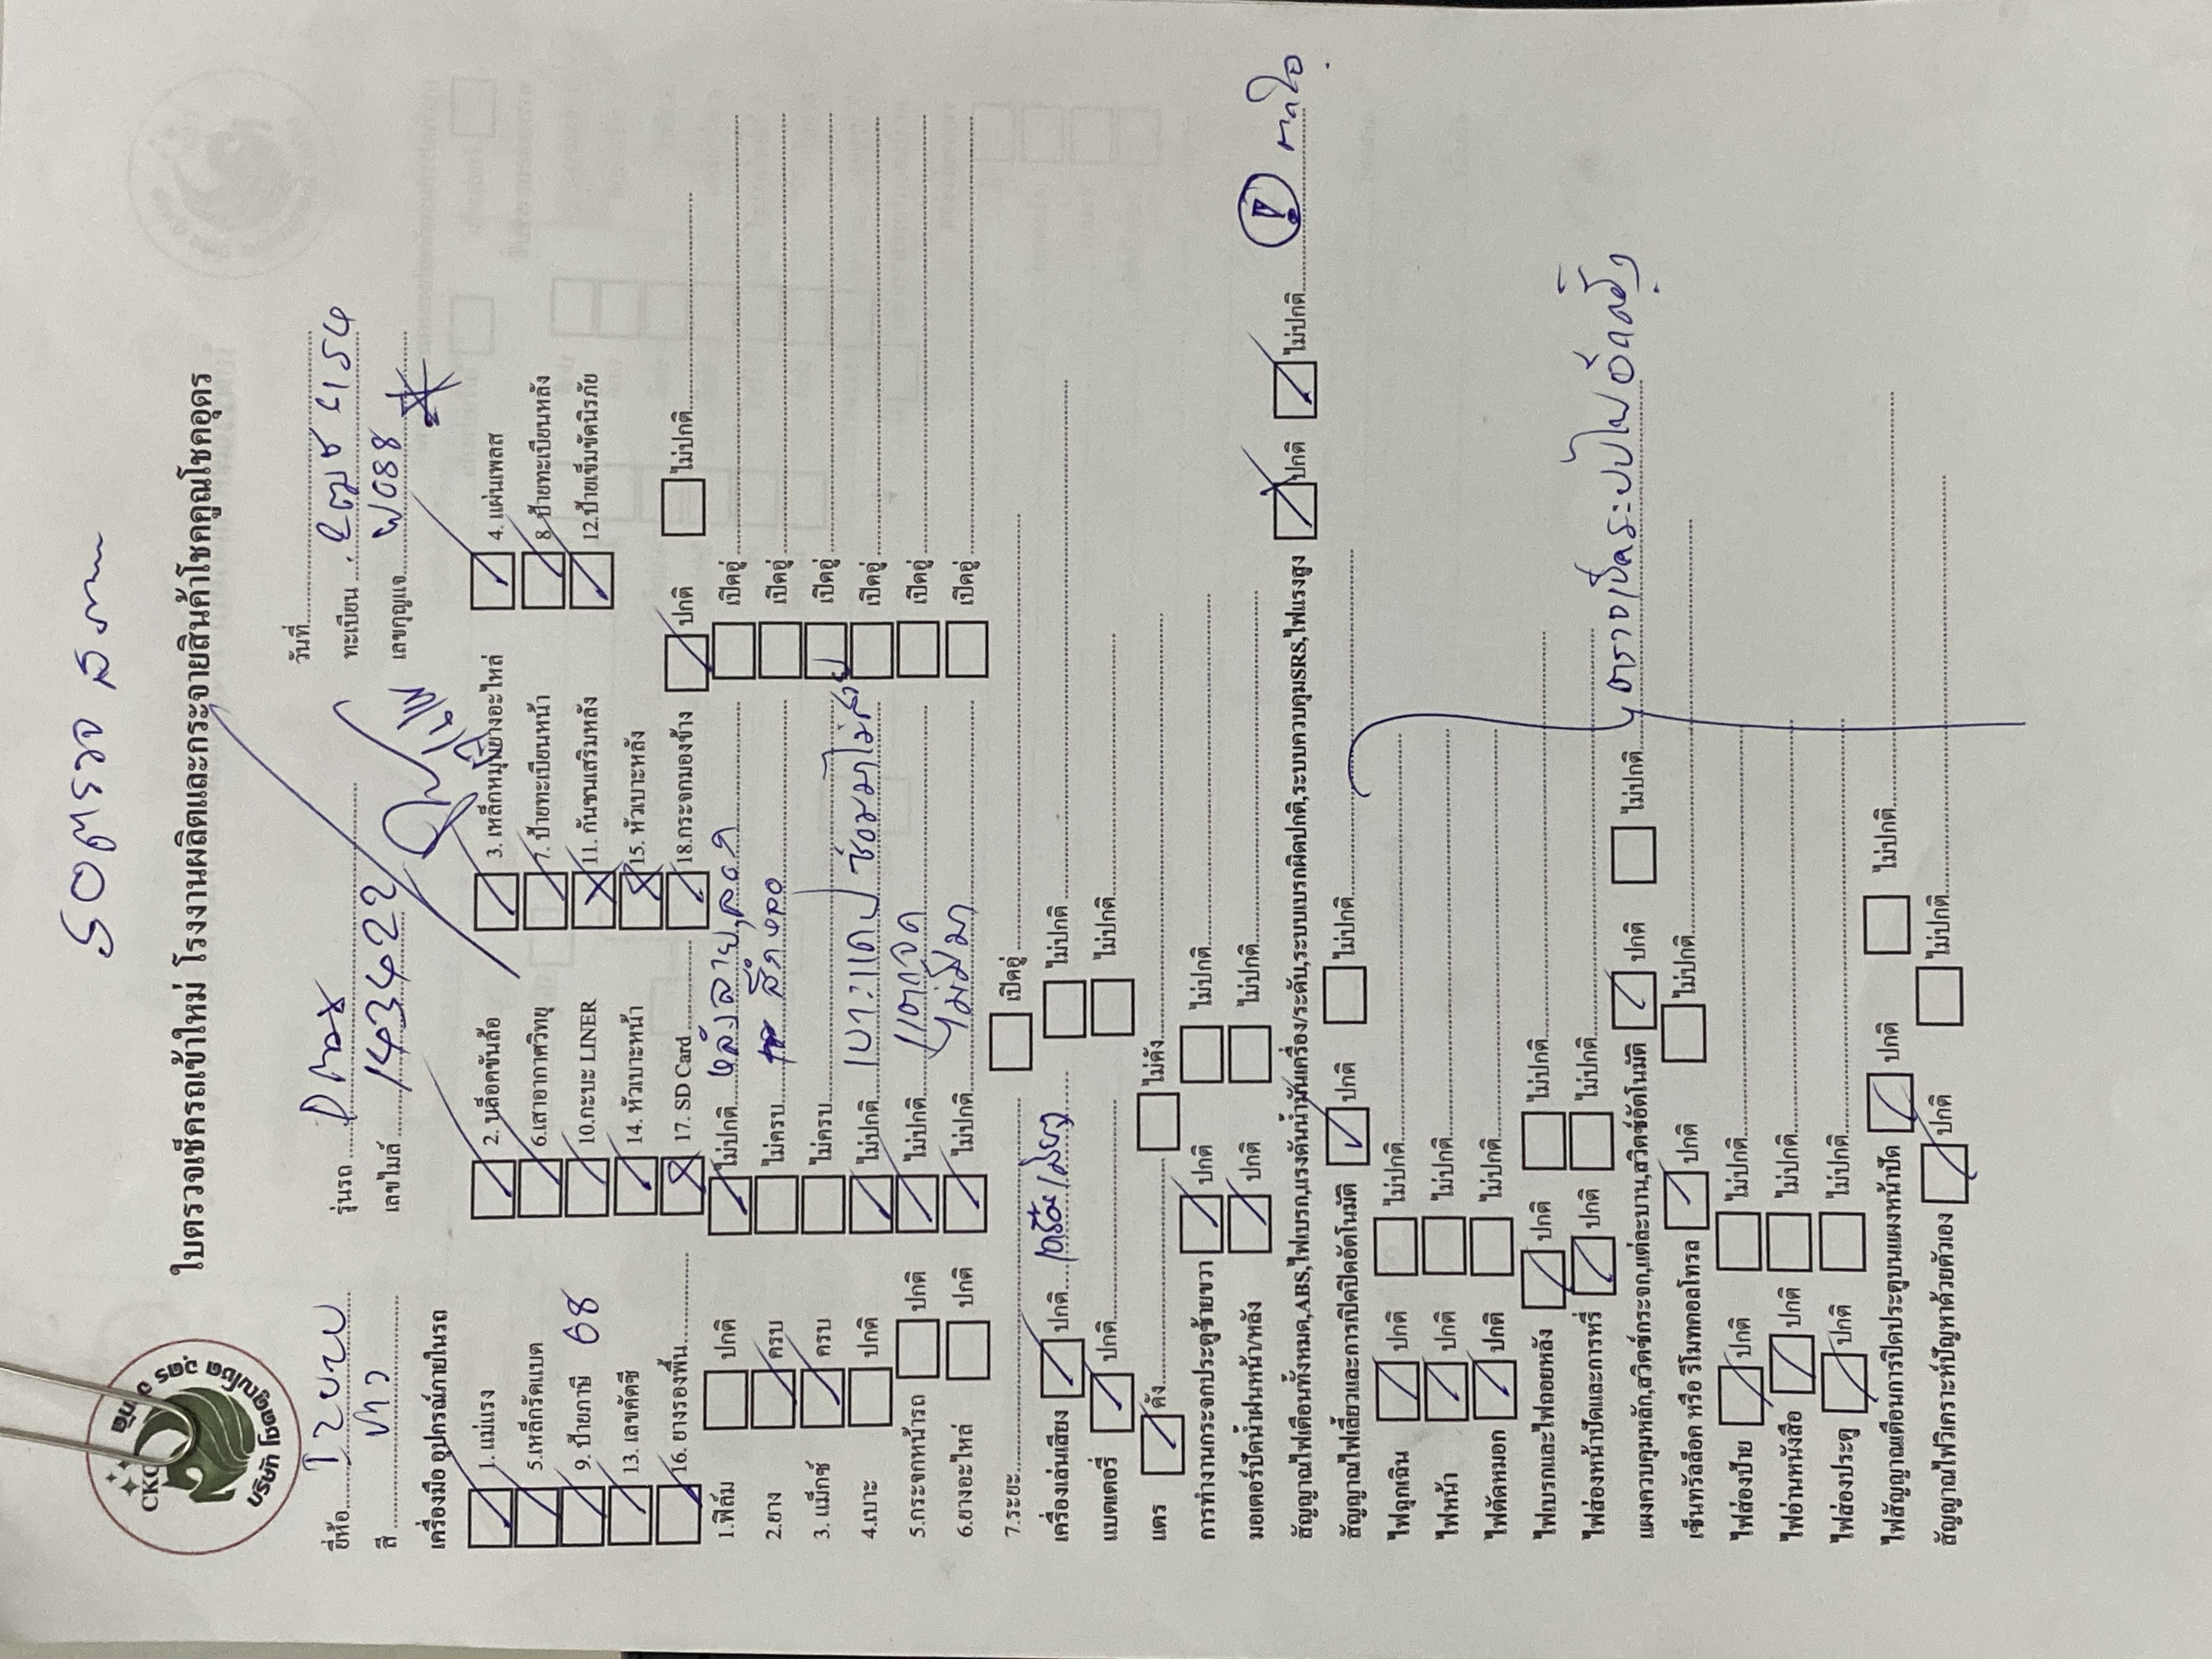 รอตรวจ สภาพ
CKC
บริษัท โชคคูณโชค อุดร จำกัด
ใบตรวจเช็ครถเข้าใหม่ โรงงานผลิตและกระจายสินค้าโชคคูณโชคอุดร
วันที่
ยี่ห้อ รุ่นรถ Dmax ทะเบียน
สี ขาว เลขไมล์ 143422 เลขกุญแจ
เครื่องมือ อุปกรณ์ภายในรถ
1. แม่แรง 2. บล็อคขันล้อ 3. เหล็กหมุนยางอะไหล่ 4. แผ่นเพลส
5.เหล็กรัดแบต 6.เสาอากาศวิทยุ 7. ป้ายทะเบียนหน้า 8. ป้ายทะเบียนหลัง
9. ป้ายภาษี 68 10.กะบะ LINER 11. กันชนเสริมหลัง 12.ป้ายเข็มขัดนิรภัย
13. เลขคัตซี 14. หัวเบาะหน้า 15. หัวเบาะหลัง
16. ยางรองพื้น 17. SD Card 18.กระจกมองข้าง ปกติ ไม่ปกติ
1.ฟิล์ม ปกติ ไม่ปกติ หลังลาย,ลอก เปิดอู่
2.ยาง ครบ ไม่ครบ สึกหรอ เปิดอู่
3. แม็กซ์ ครบ ไม่ครบ เปิดอู่
4.เบาะ ปกติ ไม่ปกติ ซ่อมมาไม่สวย เปิดอู่
5.กระจกหน้ารถ ปกติ ไม่ปกติ แตกจุด เปิดอู่
6.ยางอะไหล่ ปกติ ไม่ปกติ ไม่มีมา เปิดอู่
7.ระยะ เปิดอู่
เครื่องเล่นเสียง ปกติ ไม่ปกติ
แบตเตอรี่ ปกติ ไม่ปกติ
แตร ดัง ไม่ดัง
การทำงานกระจกประตูซ้ายขวา ปกติ ไม่ปกติ
มอเตอร์ปัดน้ำฝนหน้า/หลัง ปกติ ไม่ปกติ
สัญญาณไฟเตือนทั้งหมด,ABS,ไฟเบรก,แรงดันน้ำมันเครื่อง/ระดับ,ระบบเบรกผิดปกติ,ระบบควบคุมSRS,ไฟแรงสูง ปกติ ไม่ปกติ
สัญญาณไฟเลี้ยวและการเปิดปิดอัตโนมัติ ปกติ ไม่ปกติ
ไฟฉุกเฉิน ปกติ ไม่ปกติ
ไฟหน้า ปกติ ไม่ปกติ
ไฟตัดหมอก ปกติ ไม่ปกติ
ไฟเบรกและไฟถอยหลัง ปกติ ไม่ปกติ
ไฟส่องหน้าปัดและการหรี่ ปกติ ไม่ปกติ
แผงควบคุมหลัก,สวิตซ์กระจก,แต่ละบาน,สวิตซ์อัตโนมัติ ปกติ ไม่ปกติ
เซ็นทรัลล็อค หรือ รีโมทคอลโทรล ปกติ ไม่ปกติ
ไฟส่องป้าย ปกติ ไม่ปกติ
ไฟอ่านหนังสือ ปกติ ไม่ปกติ
ไฟส่องประตู ปกติ ไม่ปกติ
ไฟสัญญาณเตือนการปิดประตูบนแผงหน้าปัด ปกติ ไม่ปกติ
สัญญาณไฟวิเคราะห์ปัญหาด้วยตัวเอง ปกติ ไม่ปกติ